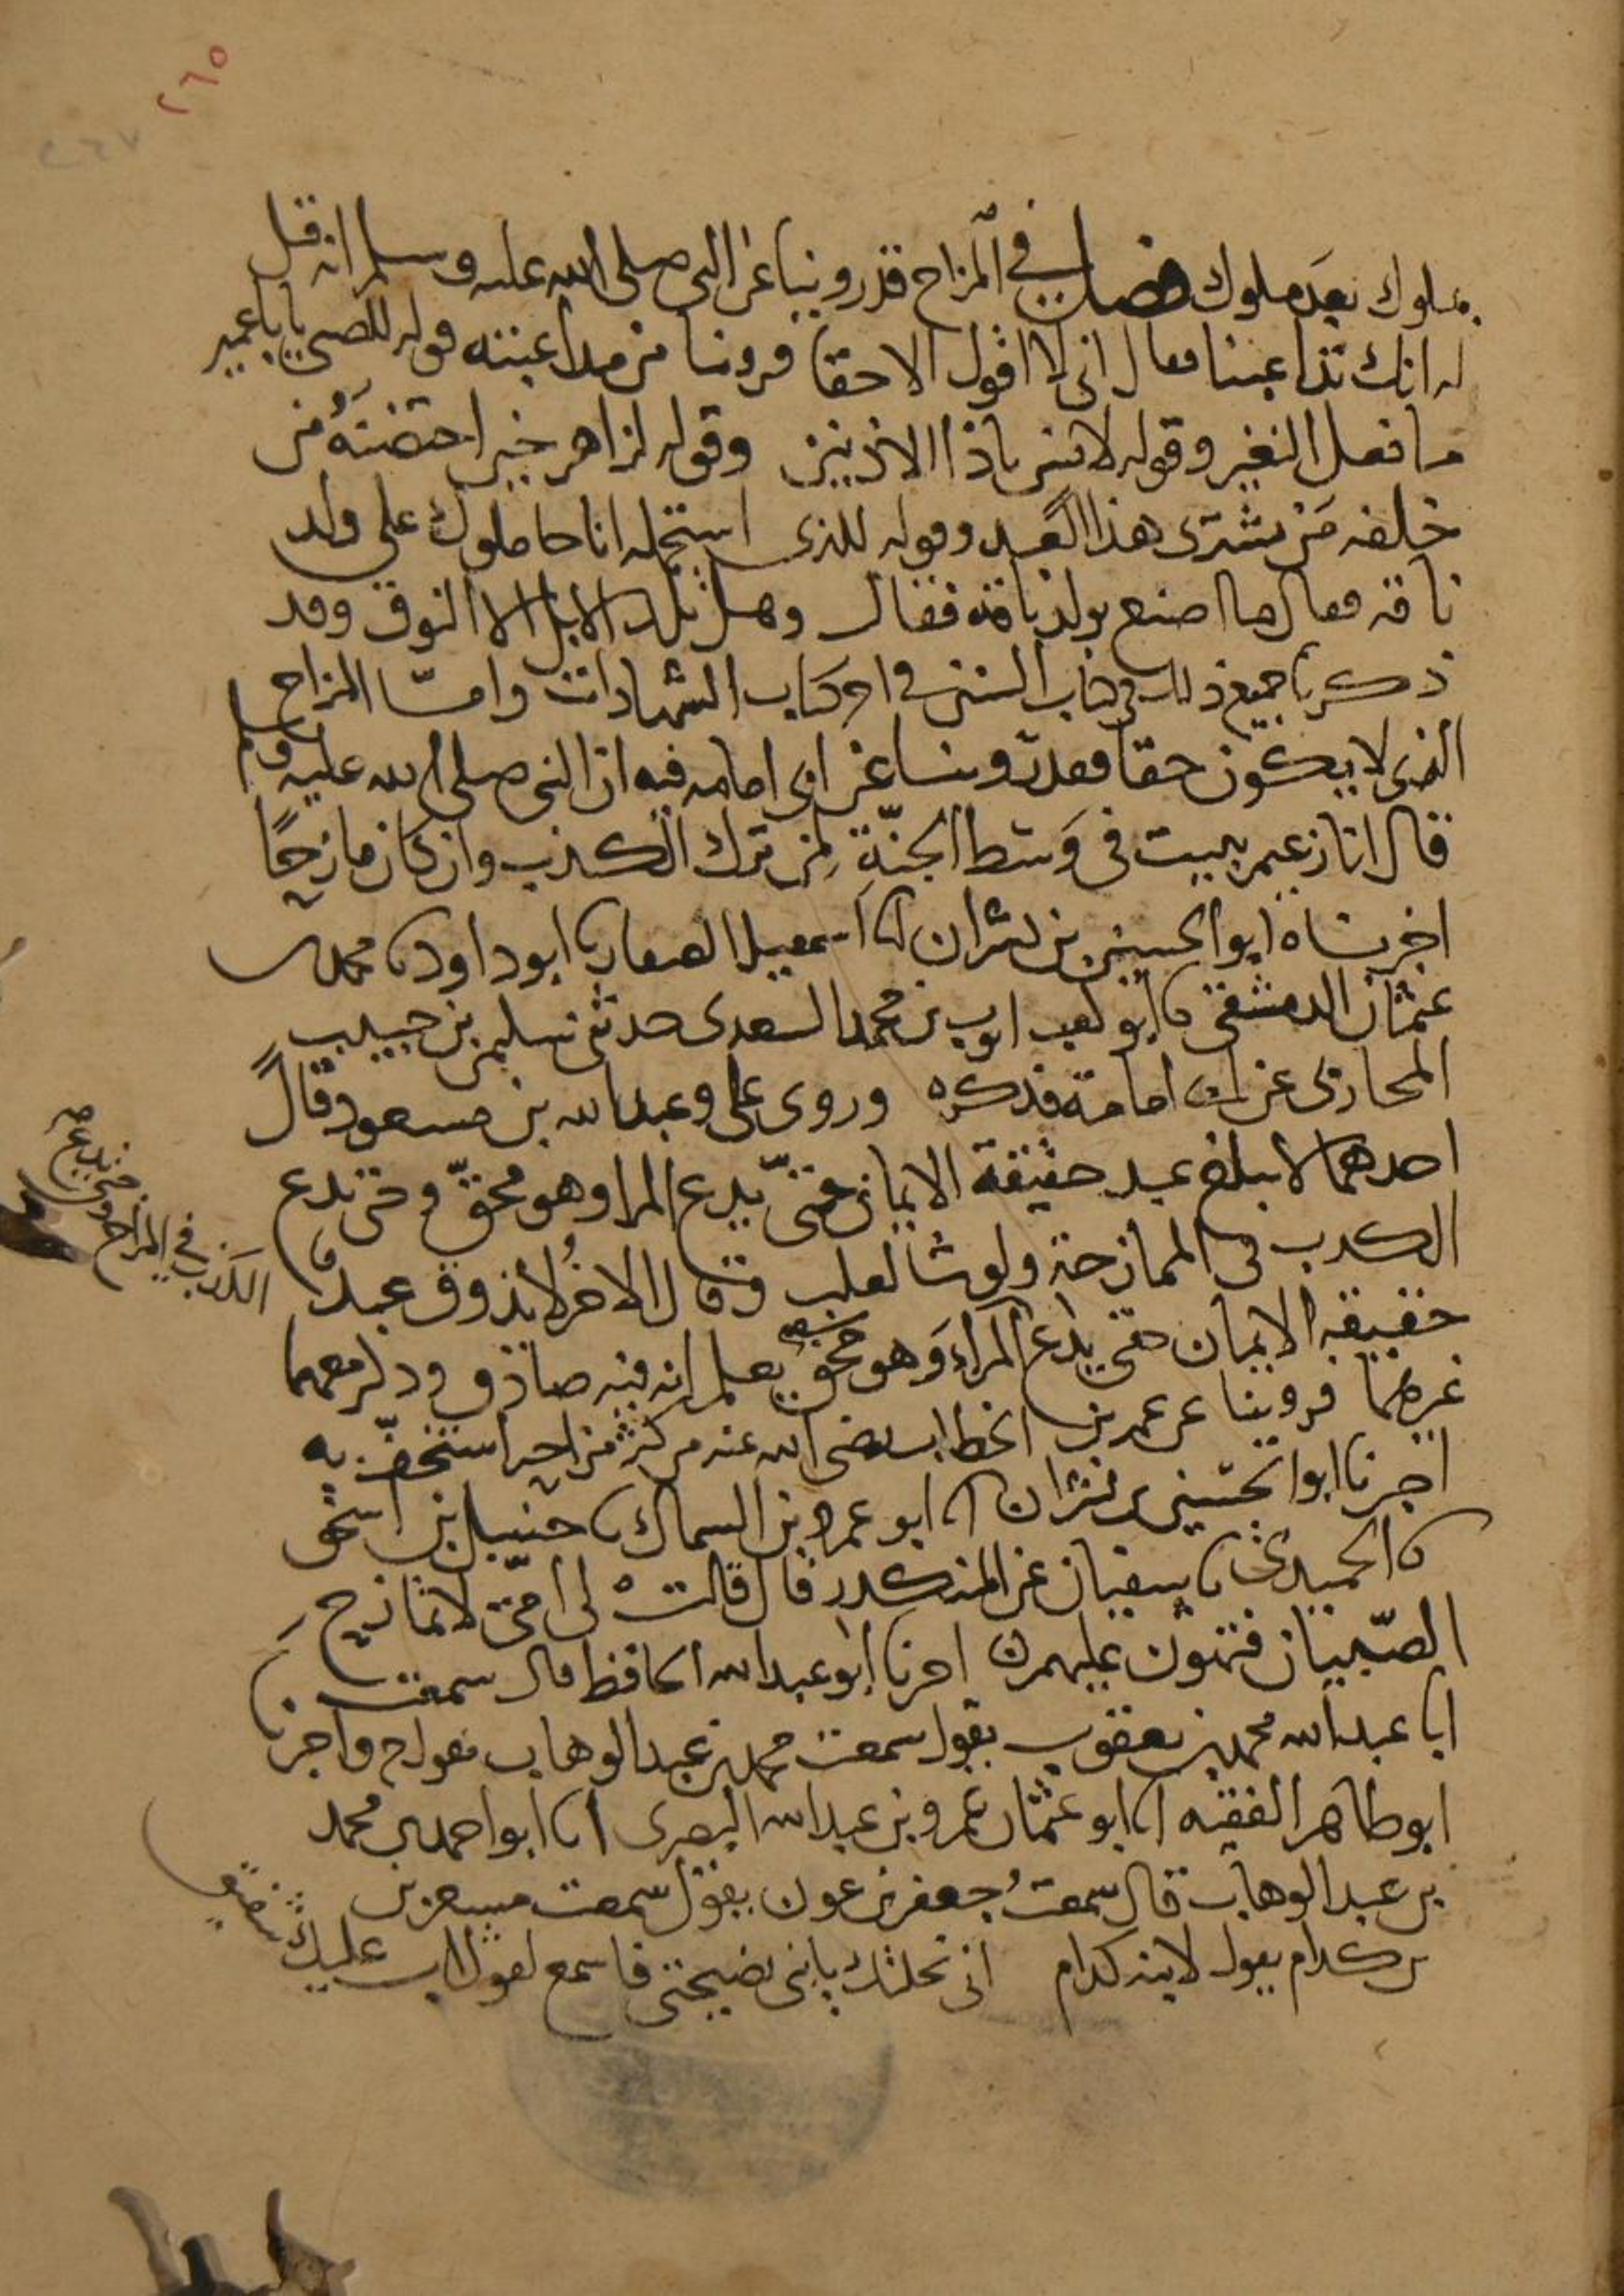 ٢٦٥
٢٦٧
ملوك بعد ملوك فصل في المزاح قد روينا عن النبي صلى الله عليه وسلم انه قيل
له انك تداعبنا فقال اني لا اقول الا حقا فروينا من مداعبته قوله للصبي يا با عمير
ما فعل النغير وقوله لانس يا ذا الاذنين وقوله لزاهر حين احتضنه من
خلفه من يشترى هذا العبد وقوله للذى استحمله انا حاملوك على ولد
ناقة فقال ما اصنع بولد ناقة فقال وهل تلد الابل الا النوق وقد
ذكرنا جميع ذلك في كتاب السنن في اخر كتاب الشهادات واما المزاح
الذى لا يكون حقا فقد روينا عن ابى امامه فيه ان النبي صلى الله عليه وسلم
قال انا زعيم ببيت في وسط الجنة لمن ترك الكذب وان كان مازحا
اخبرناه ابو الحسين بن بشران انا اسمعيل الصفار نا ابو داود نا محمد بن
عثمان الدمشقي نا ابو كعب ايوب بن محمد السعدى حدثني سليمن بن حبيب
المحاربى عن ابى امامة فذكره وروى على وعبد الله بن مسعود قال
احدهما لا يبلغ عبد حقيقة الايمان حتى يدع المرا وهو محق وحتى يدع
الكذب في الممازحة ولو شا لغلب وقال الاخر لا يذوق عبد
حقيقة الايمان حتى يدع المراء وهو محق يعلم انه فيه صادق وذكر معهما
غيرهما فروينا عن عمر بن الخطاب رضى الله عنه من كثر مزاحه استخف به
اخبرنا ابو الحسين بن بشران انا ابو عمرو بن السماك نا حنبل بن اسحق
نا الحميدى نا سفيان عن المنكدر قال قالت لى امى لا تمازح
الصبيان فتهون عليهم اخبرنا ابو عبد الله الحافظ قال سمعت
ابا عبد الله محمد بن يعقوب يقول سمعت محمد بن عبد الوهاب يقول ح واخبرنا
ابو طاهر الفقيه انا ابو عثمان عمرو بن عبد الله البصرى انا ابو احمد بن محمد
بن عبد الوهاب قال سمعت جعفر بن عون يقول سمعت مسعر بن
بن كدام يقول لابنه كدام اني نحلتك يا بنى نصيحتي فاسمع لقول اب عليك شفيق
حتى يدع
الكذب في المزاح